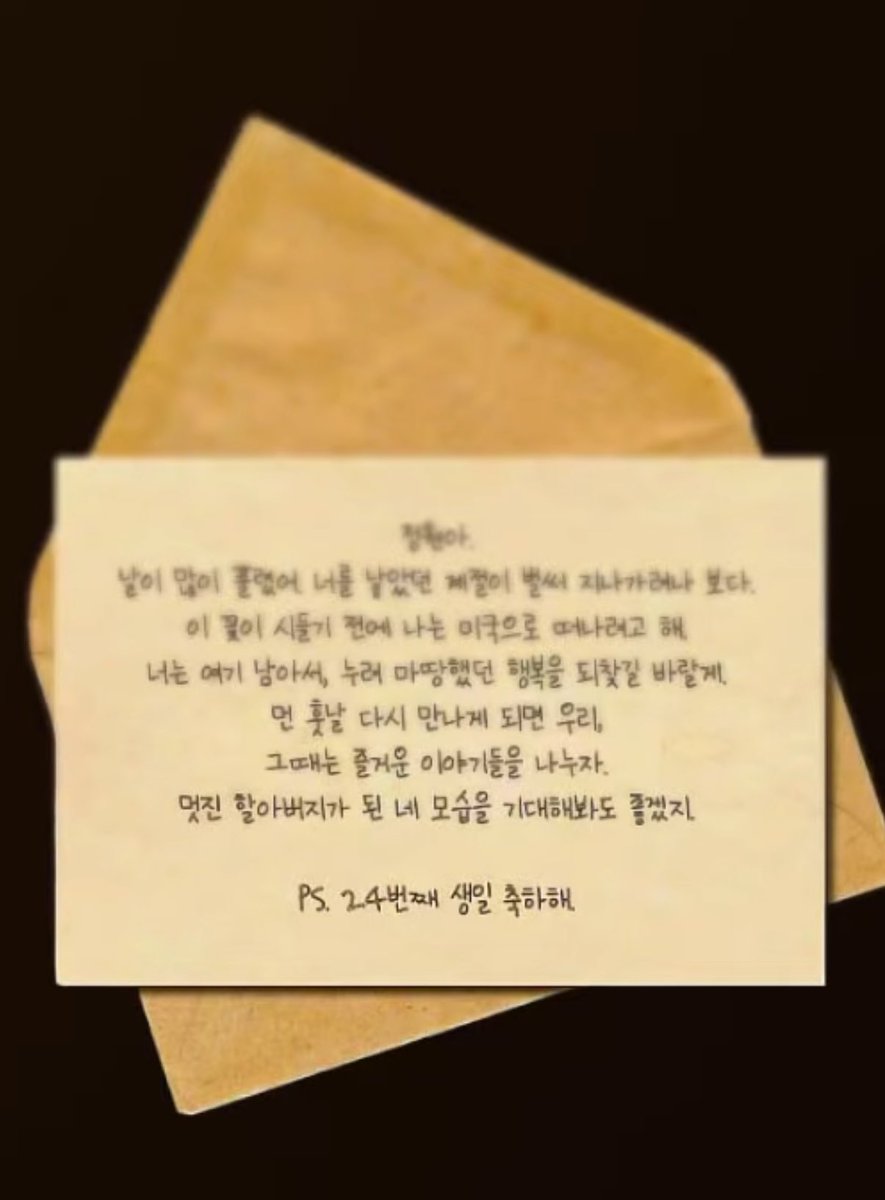 정원아.
날이 많이 풀렸어. 너를 닮았던 계절이 벌써 지나가려나 보다.
이 꽃이 시들기 전에 나는 미국으로 떠나려고 해.
너는 여기 남아서, 누려 마땅했던 행복을 되찾길 바랄게.
먼 훗날 다시 만나게 되면 우리,
그때는 즐거운 이야기들을 나누자.
멋진 할아버지가 된 네 모습을 기대해봐도 좋겠지.
PS. 24번째 생일 축하해.